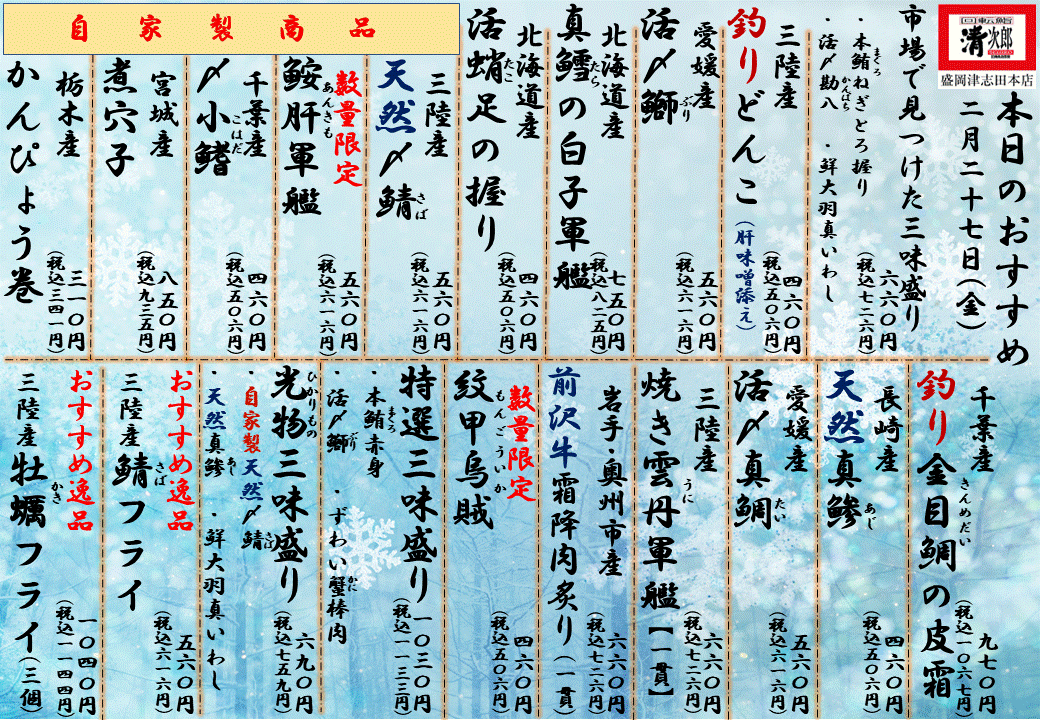 回転鮨
清次郎
盛岡津志田本店
本日のおすすめ
二月二十七日(金)
市場で見つけた三味盛り
・本鮪ねぎとろ握り
まぐろ
・活〆勘八
かんぱち
・鮮大羽真いわし
六六〇円
(税込七二六円)
三陸産
釣りどんこ
(肝味噌添え)
四六〇円
(税込五〇六円)
愛媛産
活〆鰤
ぶり
五六〇円
(税込六一六円)
北海道産
真鱈の白子軍艦
たら
七五〇円
(税込八二五円)
北海道産
活蛸足の握り
たこ
四六〇円
(税込五〇六円)
自家製商品
三陸産
天然〆鯖
さば
五六〇円
(税込六一六円)
数量限定
鮟肝軍艦
あんきも
五六〇円
(税込六一六円)
千葉産
〆小鰭
こはだ
四六〇円
(税込五〇六円)
宮城産
煮穴子
八五〇円
(税込九三五円)
栃木産
かんぴょう巻
三一〇円
(税込三四一円)
千葉産
釣り金目鯛の皮霜
きんめだい
九七〇円
(税込一〇六七円)
長崎産
天然真鯵
あじ
四六〇円
(税込五〇六円)
愛媛産
活〆真鯛
たい
五六〇円
(税込六一六円)
三陸産
焼き雲丹軍艦【一貫】
うに
六六〇円
(税込七二六円)
岩手・奥州市産
前沢牛霜降肉炙り(一貫)
六六〇円
(税込七二六円)
数量限定
紋甲烏賊
もんごういか
四六〇円
(税込五〇六円)
特選三味盛り
・本鮪赤身
まぐろ
・活〆鰤
ぶり
・ずわい蟹棒肉
かに
一〇三〇円
(税込一一三三円)
光物三味盛り
ひかりもの
・自家製天然〆鯖
さば
・天然真鯵
あじ
・鮮大羽真いわし
六九〇円
(税込七五九円)
おすすめ逸品
三陸産鯖フライ
さば
五六〇円
(税込六一六円)
おすすめ逸品
三陸産牡蠣フライ(三個)
かき
一〇四〇円
(税込一一四四円)